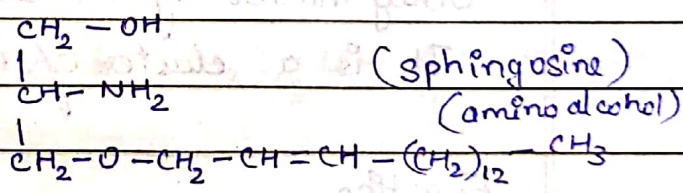 CH₂ – OH
|
CH – NH₂ (sphingosine)
| (amino alcohol)
CH₂ – O – CH₂ – CH = CH – (CH₂)₁₂ – CH₃